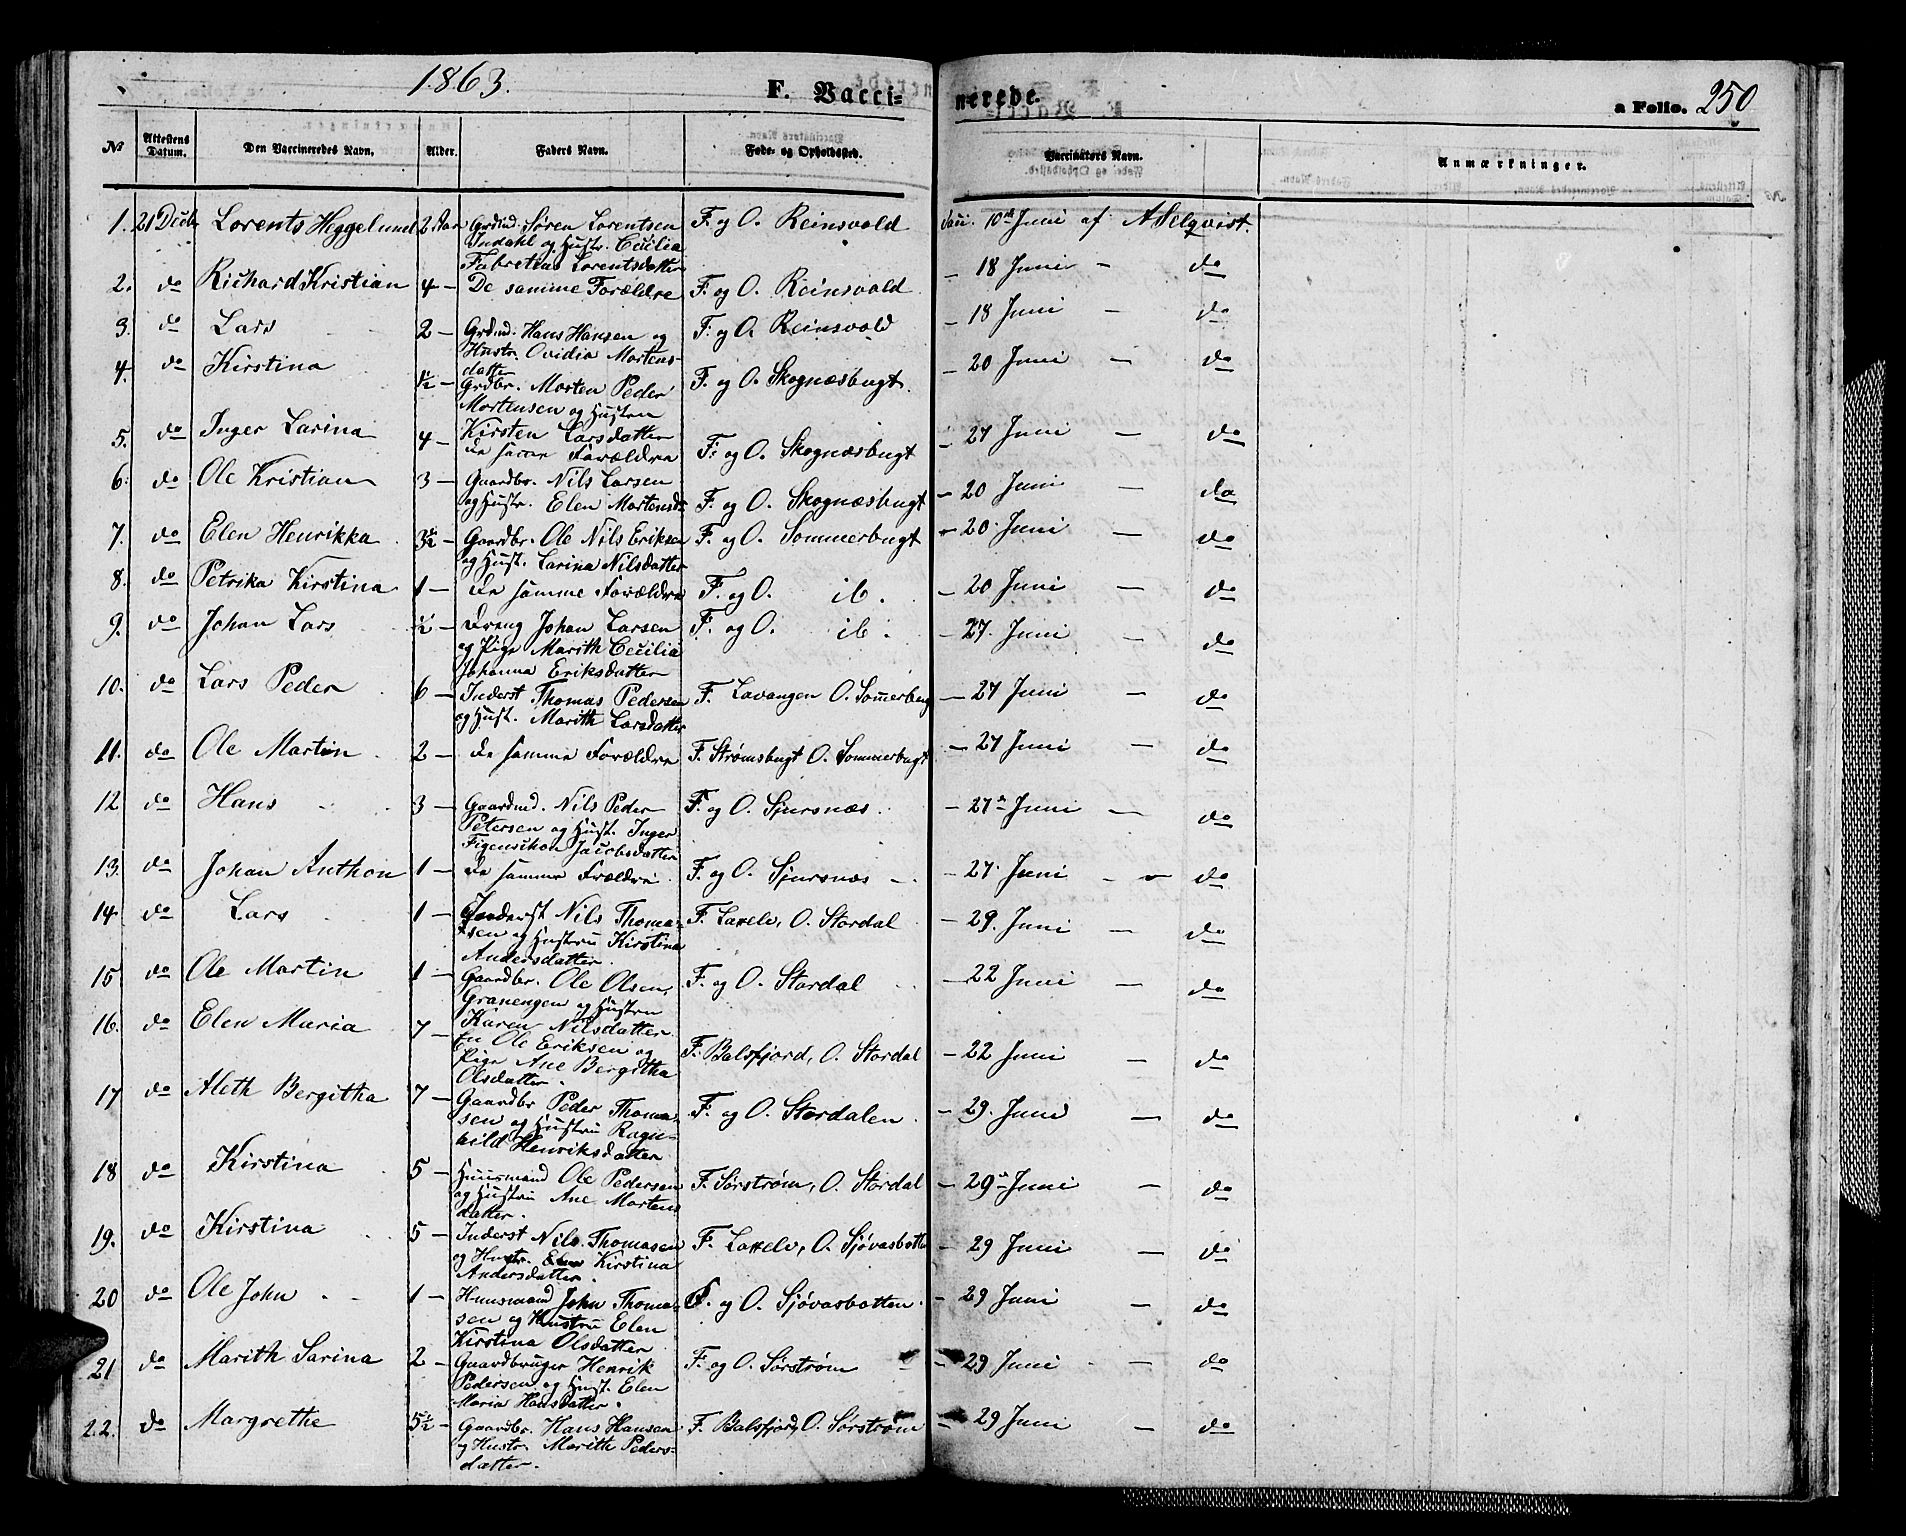 1863.
F. Vaccinerede.
a Folio. 250
No Attestens Datum. Den Vaccineredes Navn. Alder. Faders Navn. Føde- og Opholdssted. Vaccinators Navn. Anmærkninger.
1. 21 Decbr Lorents Heggelund 2 Aar Grdmd. Søren Lorentsen F. og O. Reinsvold Vacc. 10de Juni af A Selqvist.
Indahl og Hustr. Cecilia
Fabretius Lorentsdatter
2. do Richard Kristian 4 — De samme Forældre F. og O. Reinsvold — 18 Juni — do
3. do Lars 2 — Grdmd. Hans Hansen og F. og O. Reinsvold — 18 Juni — do
Hustr. Ovidia Mortens-
datter
4. do Kirstina 1½ — Grdbr. Morten Peder F. og O. Skognæsbugt. — 20 Juni — do
Mortensen og Hustru
Kirsten Larsdatter
5. do Inger Larina 4 — De samme Forældre F. og O. Skognæsbugt — 27 Juni — do
6. do Ole Kristian 3 — Gaardbr. Nils Larsen F. og O. Skognæsbugt — 20 Juni — do
og Hustr. Elen Mortensd.
7. do Elen Henrikka 3½ — Gaardbr. Ole Nils Eriksen F. og O. Sommerbugt — 20. Juni — do
og Hust. Larina Nilsdatter
8. do Petrika Kirstina 1 — De samme Forældre F. og O. ib. — 20 Juni — do
9. do Johan Lars ½ — Dreng Johan Larsen F. og O. ib. — 27. Juni — do
og Pige Marith Cecilia
Johanna Eriksdatter
10. do Lars Peder 6 — Inderst Thomas Pedersen F. Lavangen O. Sommerbugt — 27 Juni — do
og Hust. Marith Larsdatter
11. do Ole Martin 2 — De samme Forældre F. Strømsbugt O. Sommerbugt — 27 Juni — do
12 do Hans 3 — Gaardmd. Nils Peder F. og O. Sjursnæs. — 27de Juni — do
Petersen og Hust. Inger
Figenschou Jacobsdatter
13. do Johan Anthon 1 — De samme Frældre F. og O. Sjursnæs — 27. Juni — do
14. do Lars 1 — Inderst Nils Thoma- F. Laxelv, O. Stordal — 29. Juni — do
sen og Hustru Kirstina
Andersdatter.
15 do Ole Martin 1 — Gaardbr. Ole Olsen F. og O. Stordal — 22 Juni — do
Granengen og Hustru
Karen Nilsdatter
16. do Elen Maria 7 — Ole Eriksen og F. Balsfjord, O. Stordal — 22 Juni — do
Pige Ane Bergitha
Olsdatter.
17 do Aleth Bergitha 7 — Gaardbr Peder Thoma- F. og O. Stordalen. — 29. Juni — do
sen og Hustru Ragn-
hild Henriksdatter
18 do Kirstina 5 — Huusmand Ole Pedersen F. Sørstrøm, O. Stordal — 29de Juni — do
og Hustru Ane Mortens
datter.
19. do Kirstina 5 — Inderst Nils Thomasen F. Laxelv, O. Sjøvasbotten — 29 Juni — do
og Hustr. Elen Kirstina
Andersdatter.
20 do Ole John 1 — Huusmand John Thoma- F. og O. Sjøvasbotten. — 29 Juni — do
sen og Hustru Elen
Kirstina Olsdatter
21 do Marith Sarina 2 — Gaardbruger Henrik F. og O. Sørstrøm — 29 Juni — do
Pedersen og Hust. Elen
Maria Hansdatter.
22. do Margrethe 5½ — Gaardbr. Hans Hansen F. Balsfjord, O. Sørstrøm — 29 Juni — do
og Hustr. Marith Peders-
datter.